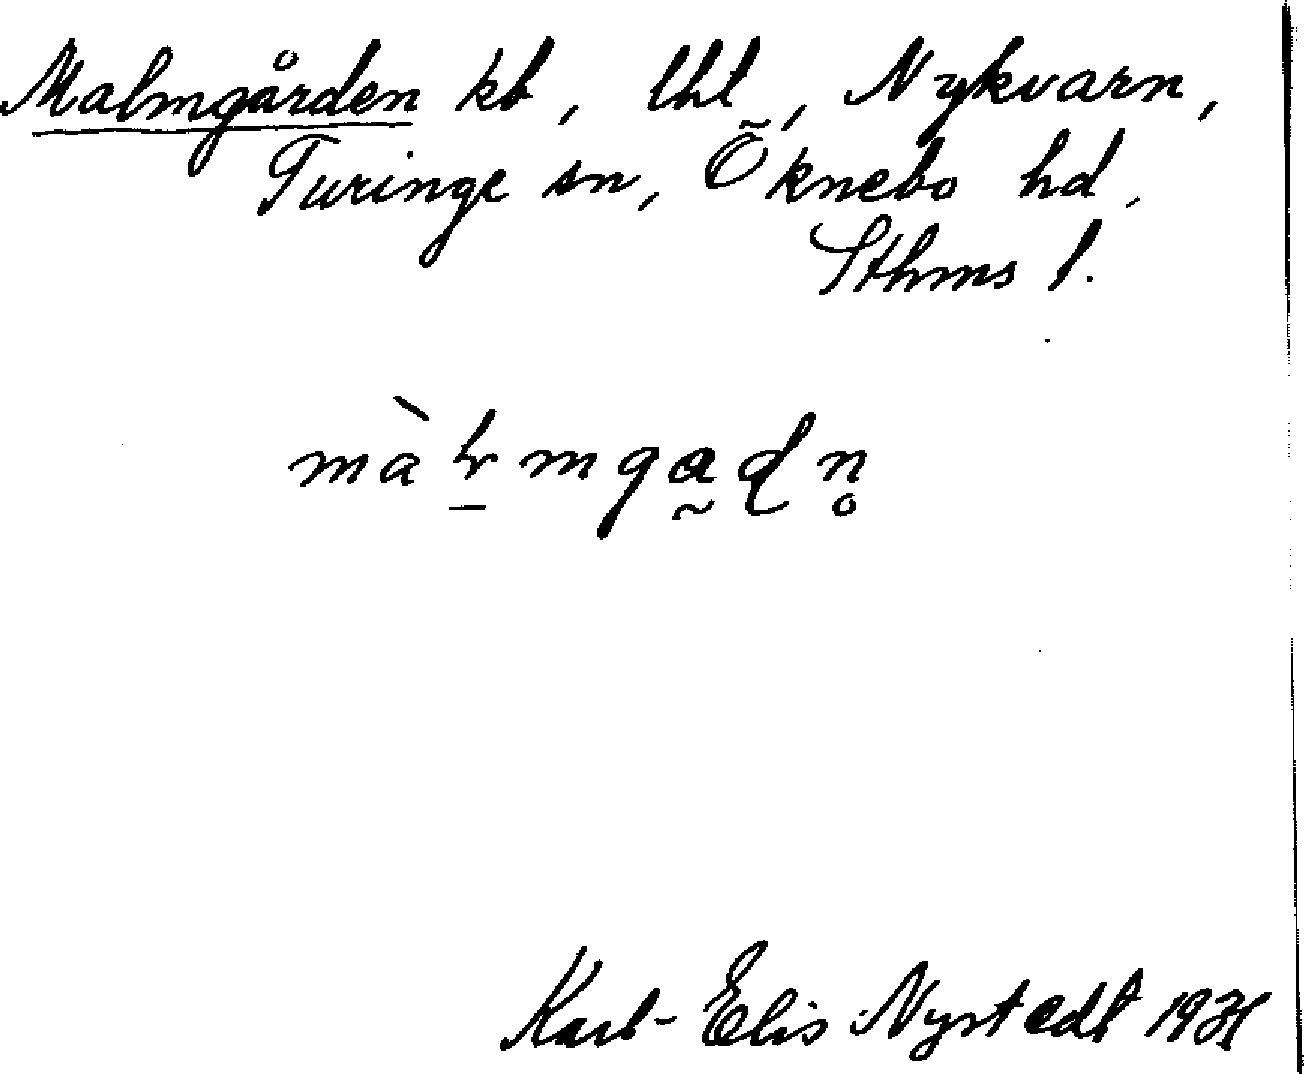 Malmgården kb, lht, Nykvarn,
Turinge sn, Öknebo hd,
Sthms l.
Karl-Elis Nystedt 1931